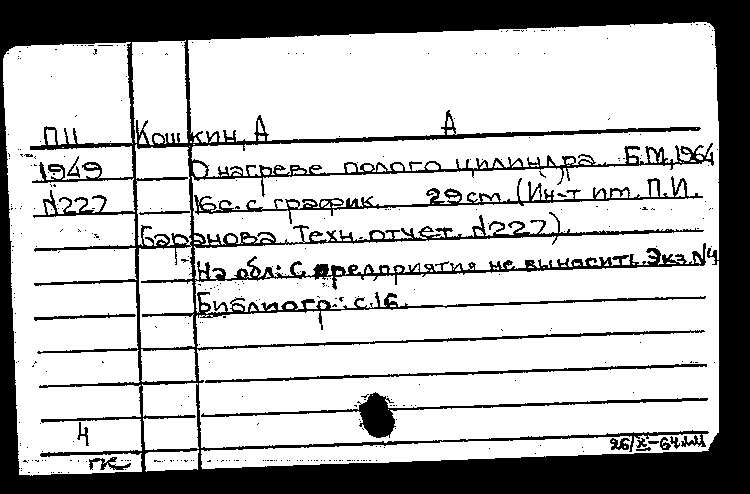 П11 Кошкин, А А
1949 О нагреве полого цилиндра. Б.М., 1964
N227 16с. с график. 29 cm. (Ин-т им. П.И.
Баранова. Техн. отчет. N227).
На обл: С предприятия не выносить. Экз. N4
Библиогр.: с. 16.
4
26/X-64